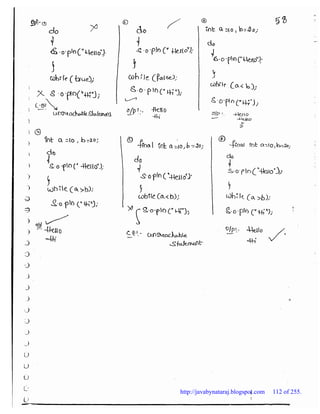 58
①
do
{
S.o.pln("Hello");
}
while (true);
S.o.pln("Hi");
C.E:-
unreachable Statement
②
do
{
S.o.pln("Hello");
}
while (false);
S.o.pln("Hi");
O/P:- Hello
Hi
③
int a=10, b=20;
do
{
S.o.pln("Hello");
}
while (a<b);
S.o.pln("Hi");
O/P:- Hello
Hello
④
int a=10, b=20;
do
{
S.o.pln("Hello");
}
while (a>b);
S.o.pln("Hi");
O/P
Hello
Hi
⑤
final int a=10, b=20;
do
{
S.o.pln("Hello");
}
while (a<b);
S.o.pln("Hi");
C.E:- unreachable
Statement
⑥
final int a=10, b=20;
do
{
S.o.pln("Hello");
}
while (a>b);
S.o.pln("Hi");
O/P:- Hello
Hi
http://javabynataraj.blogspot.com 112 of 255.